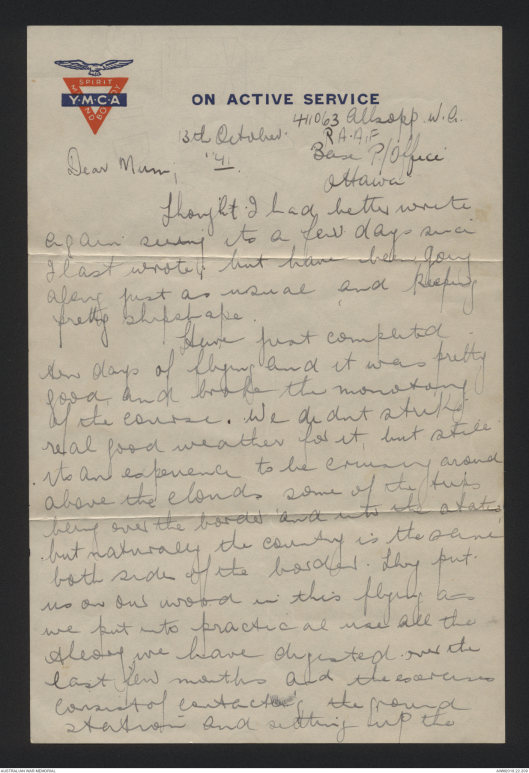 SPIRIT
Y·M·C·A
MIND BODY
ON ACTIVE SERVICE
411063 Allsopp. W.C.
13th October. R.A.A.F
'41. Base P/Office
Dear Mum, Ottawa
Thought I had better write
again seeing its a few days since
I last wrote, but have been going
along just as usual and keeping
pretty shipshape.
Have just completed
ten days of flying and it was pretty
good and broke the monotony
of the course. We didnt strike
real good weather for it, but still
its an experience to be cruising around
above the clouds some of the trips
being over the border and into the states
but naturally the country is the same
both sides of the border. They put
us on our in this flying as
we put into practical use all the
theory we have digested over the
last few months and the exercises
consist of contacting the ground
station and setting up the
AUSTRALIAN WAR MEMORIAL